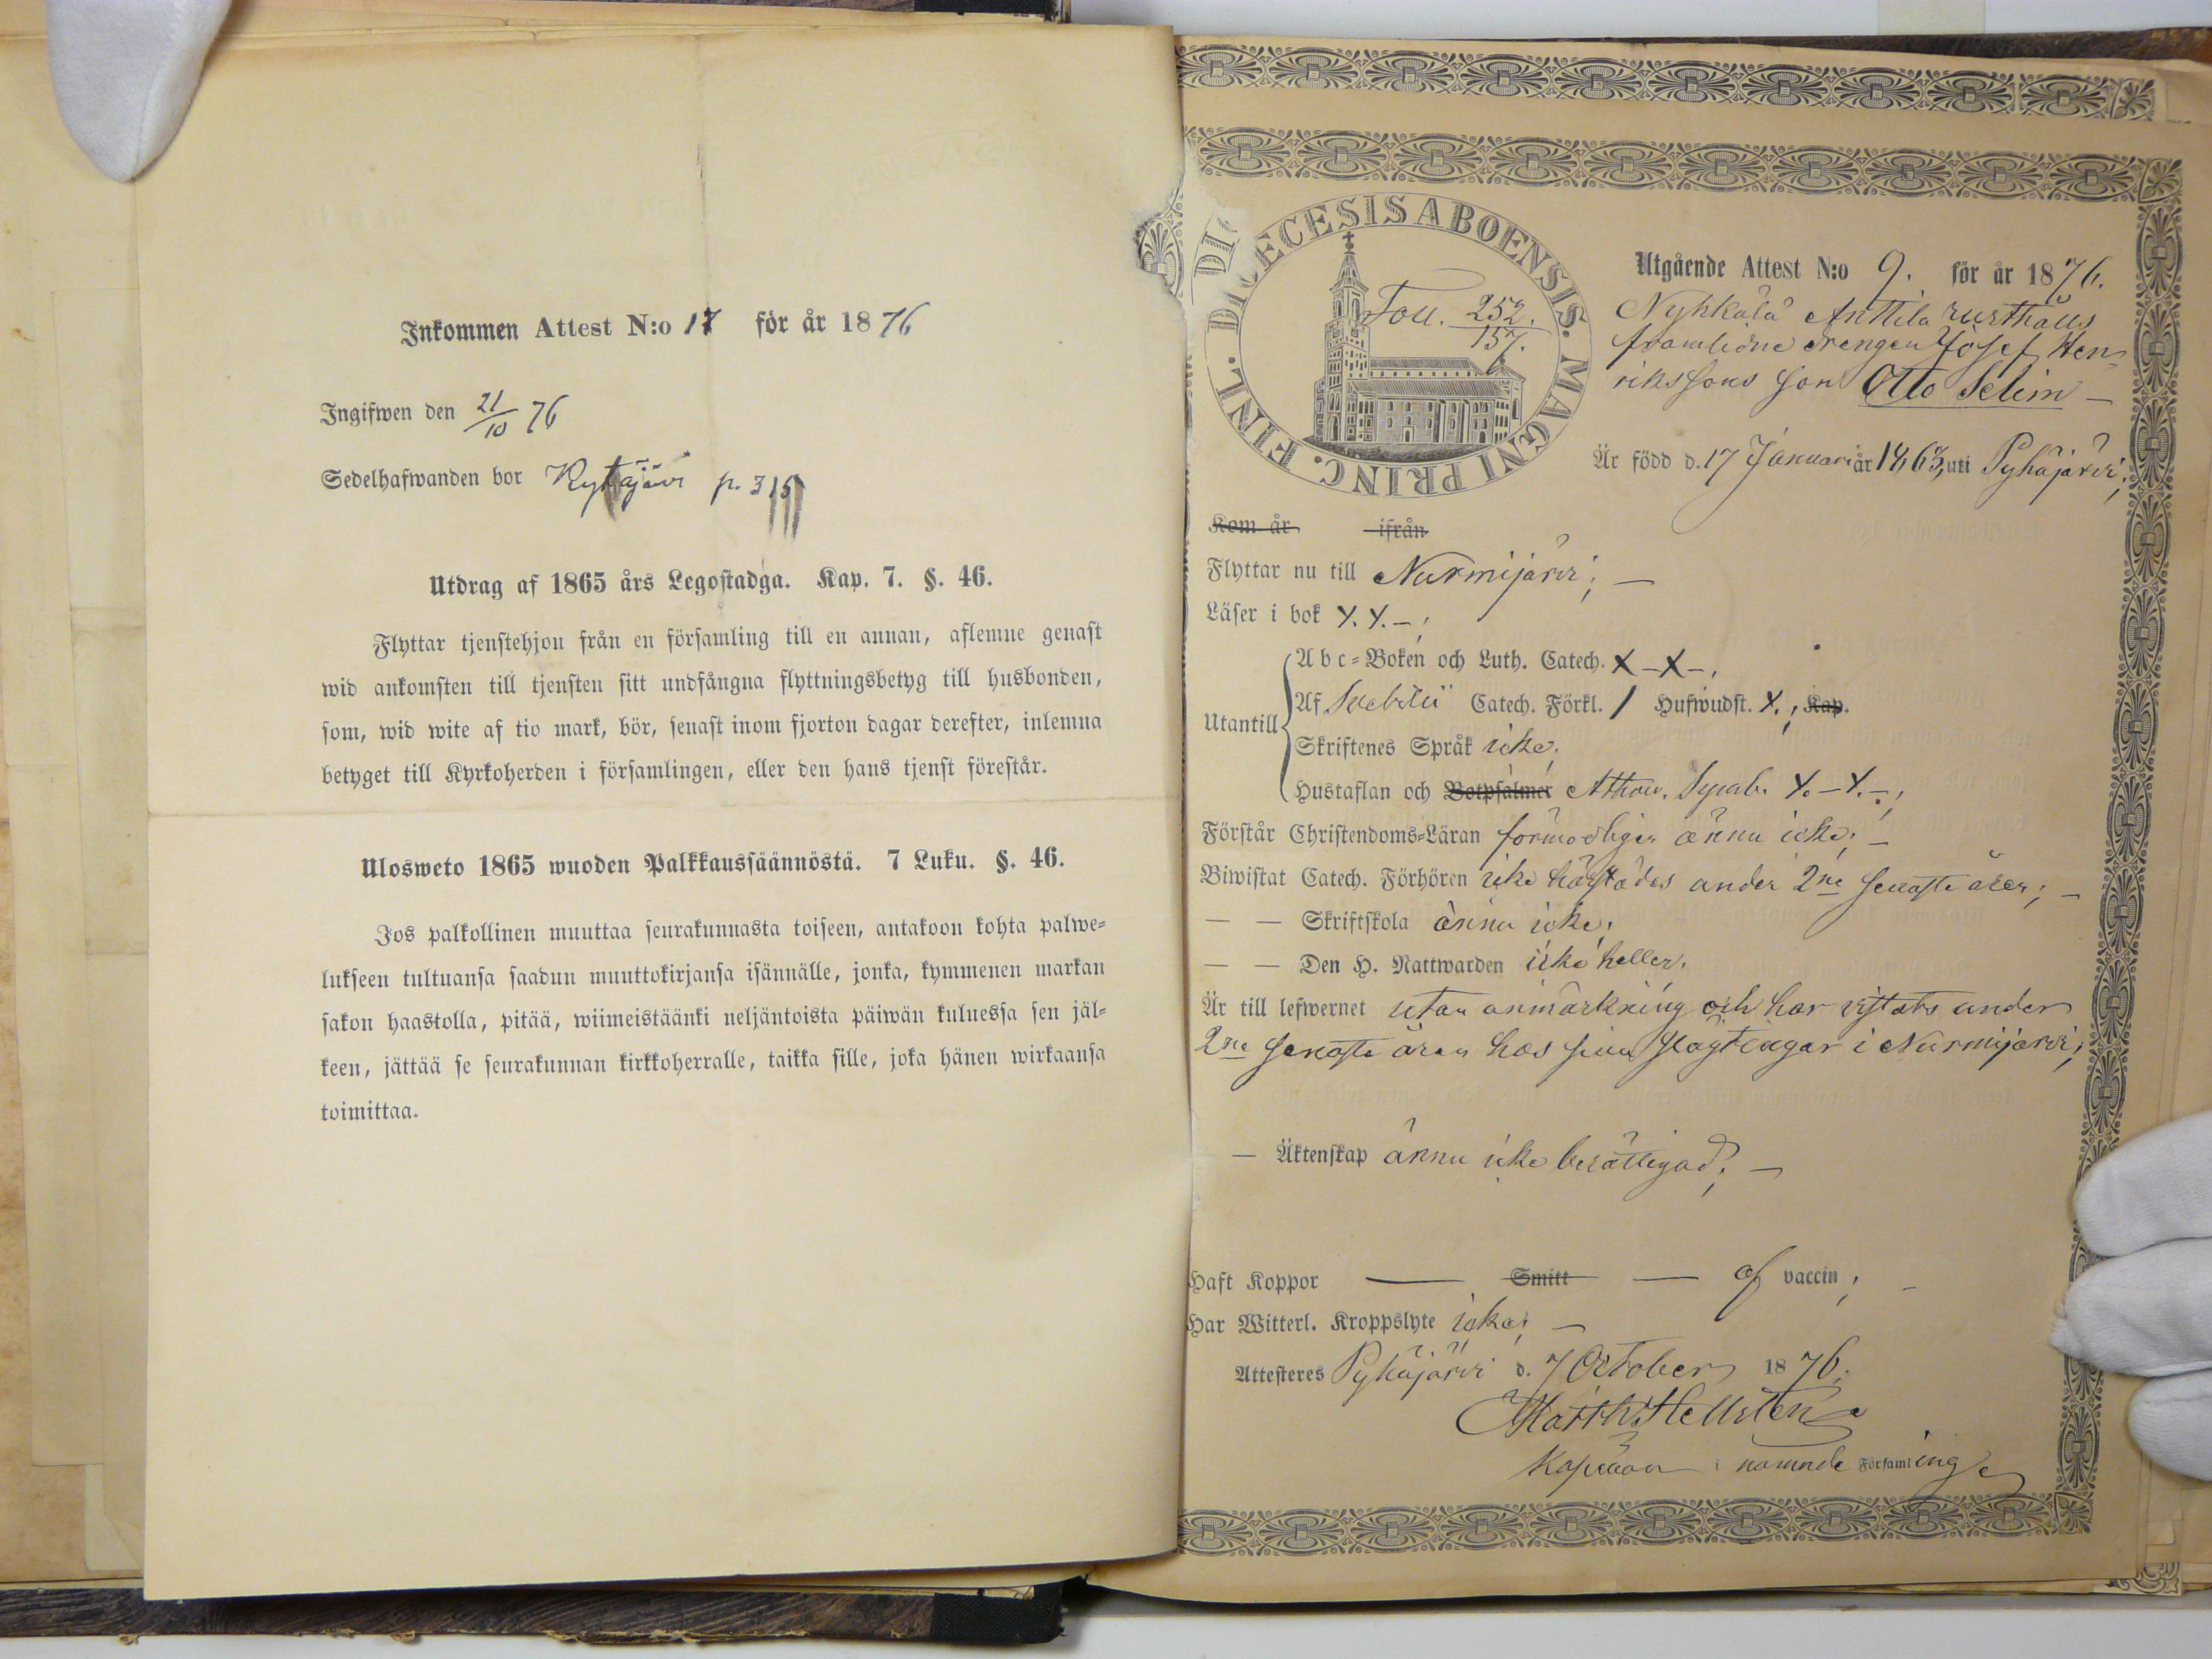 Inkommen Attest N:o 17 för år 1876
Ingifwen den 21/10 76
Sedelhafwanden bor Kytäjärvi p. 315
Utdrag af 1865 års Legostadga. Kap. 7. §. 46.
Flyttar tjenstehjon från en församling till en annan, aflemne genast
wid ankomsten till tjensten sitt undfångna flyttningsbetyg till husbonden,
som, wid wite af tio mark, bör, senast inom fjorton dagar derefter, inlemna
betyget till Kyrkoherden i församlingen, eller den hans tjenst förestår.
Ulosweto 1865 wuoden Palkkaussäännöstä. 7 Luku. §. 46.
Jos palkollinen muuttaa seurakunnasta toiseen, antakoon kohta palwe-
lukseen tultuansa saadun muuttokirjansa isännälle, jonka, kymmenen markan
sakon haastolla, pitää, wiimeistäänki neljäntoista päiwän kuluessa sen jäl-
keen, jättää se seurakunnan kirkkoherralle, taikka sille, joka hänen wirkaansa
toimittaa.
DIŒCESIS ABOENSIS. MAGNI PRINC. FINL.
Foll. 252.
157.
Utgående Attest N:o 9. för år 1876.
Nyhkälä Anttila rusthålls
framlidne drengen Josef Hen-
rikssons son Otto Selim –
Är född d. 17 Januari år 1863, uti Pyhäjärvi;
Kom år ifrån
Flyttar nu till Nurmijärvi; –
Läser i bok X. X. – ;
Abc-Boken och Luth. Catech. X – X – ,
Utantill
Af Svebilii Catech. Förkl. / Hufwudst. X. , Kap.
Skriftenes Språk icke;
Hustaflan och Botpsalmer Athan. Symb. X. – X. – ;
Förstår Christendoms-Läran förmodligen ännu icke; –
Biwistat Catech. Förhören icke härstädes under 2ne senaste åren; –
— — Skriftskola ännu icke,
— — Den H. Nattwarden icke heller.
Är till lefwernet utan anmärkning och har vistats under
2ne senaste åren hos sina slägtingar i Nurmijärvi;
— Äktenskap ännu icke berättigad; –
Haft Koppor — Smitt — af vaccin ; –
Har Witterl. Kroppslyte icke; –
Attesteras Pyhäjärvi d. 7 October 1876.
Matth. Hellstén
Kapellan i nämnde Församling